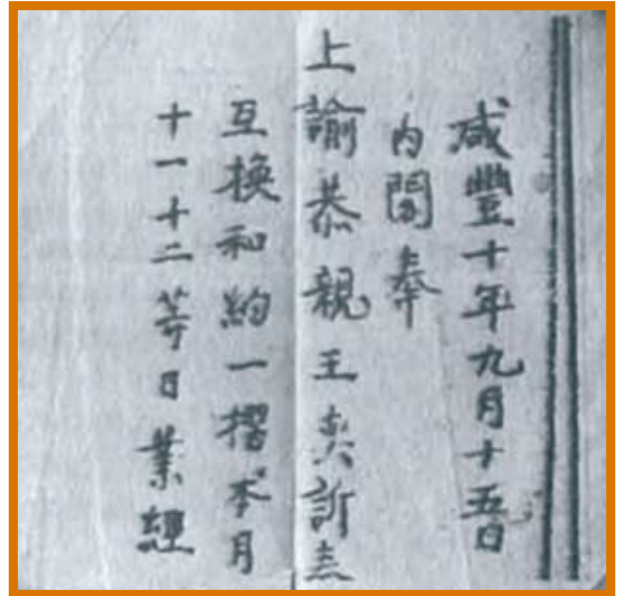 咸豐十年九月十五日
內閣奉
上諭恭親王奕訢奏
互換和約一摺本月
十一十二等日業經